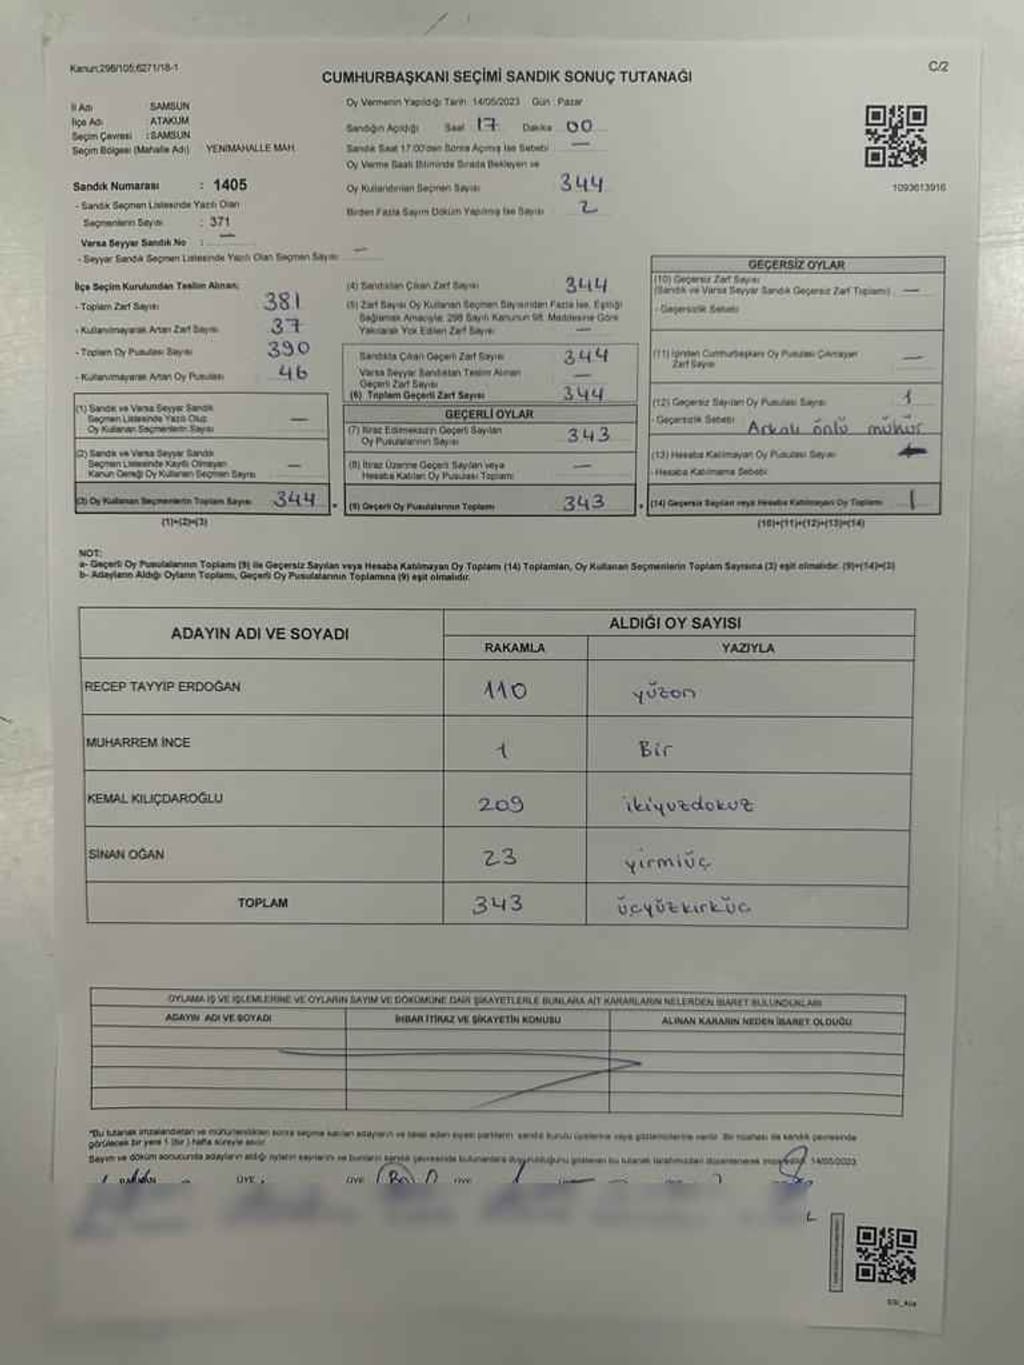 Kanun:298/105;6271/18-1
C/2
CUMHURBAŞKANI SEÇİMİ SANDIK SONUÇ TUTANAĞI
İl Adı SAMSUN
İlçe Adı ATAKUM
Seçim Çevresi : SAMSUN
Seçim Bölgesi (Mahalle Adı) YENİMAHALLE MAH.
Sandık Numarası : 1405
- Sandık Seçmen Listesinde Yazılı Olan
Seçmenlerin Sayısı : 371
Varsa Seyyar Sandık No : —
- Seyyar Sandık Seçmen Listesinde Yazılı Olan Seçmen Sayısı —
Oy Vermenin Yapıldığı Tarih : 14/05/2023 Gün : Pazar
Sandığın Açıldığı Saat 17 Dakika 00
Sandık Saat 17:00'den Sonra Açılmış İse Sebebi —
Oy Verme Saati Bitiminde Sırada Bekleyen ve
Oy Kullandırılan Seçmen Sayısı 344
Birden Fazla Sayım Döküm Yapılmış İse Sayısı 2
1093613916
İlçe Seçim Kurulundan Teslim Alınan;
- Toplam Zarf Sayısı 381
- Kullanılmayarak Artan Zarf Sayısı 37
- Toplam Oy Pusulası Sayısı 390
- Kullanılmayarak Artan Oy Pusulası 46
(1) Sandık ve Varsa Seyyar Sandık
Seçmen Listesinde Yazılı Olup
Oy Kullanan Seçmenlerin Sayısı —
(2) Sandık ve Varsa Seyyar Sandık
Seçmen Listesinde Kayıtlı Olmayan
Kanun Gereği Oy Kullanan Seçmen Sayısı —
(3) Oy Kullanan Seçmenlerin Toplam Sayısı 344
(1)+(2)=(3)
(4) Sandıktan Çıkan Zarf Sayısı 344
(5) Zarf Sayısı Oy Kullanan Seçmen Sayısından Fazla İse, Eşitliği
Sağlamak Amacıyla; 298 Sayılı Kanunun 98. Maddesine Göre
Yakılarak Yok Edilen Zarf Sayısı —
Sandıkta Çıkan Geçerli Zarf Sayısı 344
Varsa Seyyar Sandıktan Teslim Alınan
Geçerli Zarf Sayısı —
(6) Toplam Geçerli Zarf Sayısı 344
GEÇERLİ OYLAR
(7) İtiraz Edilmeksizin Geçerli Sayılan
Oy Pusulalarının Sayısı 343
(8) İtiraz Üzerine Geçerli Sayılan veya
Hesaba Katılan Oy Pusulası Toplamı —
(9) Geçerli Oy Pusulalarının Toplamı 343
GEÇERSİZ OYLAR
(10) Geçersiz Zarf Sayısı
(Sandık ve Varsa Seyyar Sandık Geçersiz Zarf Toplamı) —
- Geçersizlik Sebebi
(11) İçinden Cumhurbaşkanı Oy Pusulası Çıkmayan
Zarf Sayısı —
(12) Geçersiz Sayılan Oy Pusulası Sayısı 1
- Geçersizlik Sebebi Arkalı önlü mühür
(13) Hesaba Katılmayan Oy Pusulası Sayısı
- Hesaba Katılmama Sebebi
(14) Geçersiz Sayılan veya Hesaba Katılmayan Oy Toplamı 1
(10)+(11)+(12)+(13)=(14)
NOT:
a- Geçerli Oy Pusulalarının Toplamı (9) ile Geçersiz Sayılan veya Hesaba Katılmayan Oy Toplamı (14) Toplamları, Oy Kullanan Seçmenlerin Toplam Sayısına (3) eşit olmalıdır. (9)+(14)=(3)
b- Adayların Aldığı Oyların Toplamı, Geçerli Oy Pusulalarının Toplamına (9) eşit olmalıdır.
ADAYIN ADI VE SOYADI ALDIĞI OY SAYISI
RAKAMLA YAZIYLA
RECEP TAYYİP ERDOĞAN 110 yüzon
MUHARREM İNCE 1 Bir
KEMAL KILIÇDAROĞLU 209 ikiyuzdokuz
SİNAN OĞAN 23 yirmiüç
TOPLAM 343 üçyüzkırküç
OYLAMA İŞ VE İŞLEMLERİNE VE OYLARIN SAYIM VE DÖKÜMÜNE DAİR ŞİKAYETLERLE BUNLARA AİT KARARLARIN NELERDEN İBARET BULUNDUKLARI
ADAYIN ADI VE SOYADI İHBAR İTİRAZ VE ŞİKAYETİN KONUSU ALINAN KARARIN NEDEN İBARET OLDUĞU
*Bu tutanak imzalandıktan ve mühürlendikten sonra seçime katılan adayların ve talep eden siyasi partilerin sandık kurulu üyelerine veya gözlemcilerine verilir. Bir nüshası da sandık çevresinde
görülecek bir yere 1 (bir) hafta süreyle asılır.
Sayım ve döküm sonucunda adayların aldığı oyların sayılarını ve bunların sandık çevresinde bulunanlara duyurulduğunu gösteren bu tutanak tarafımızdan düzenlenerek 14/05/2023
ÜYE ÜYE ÜYE